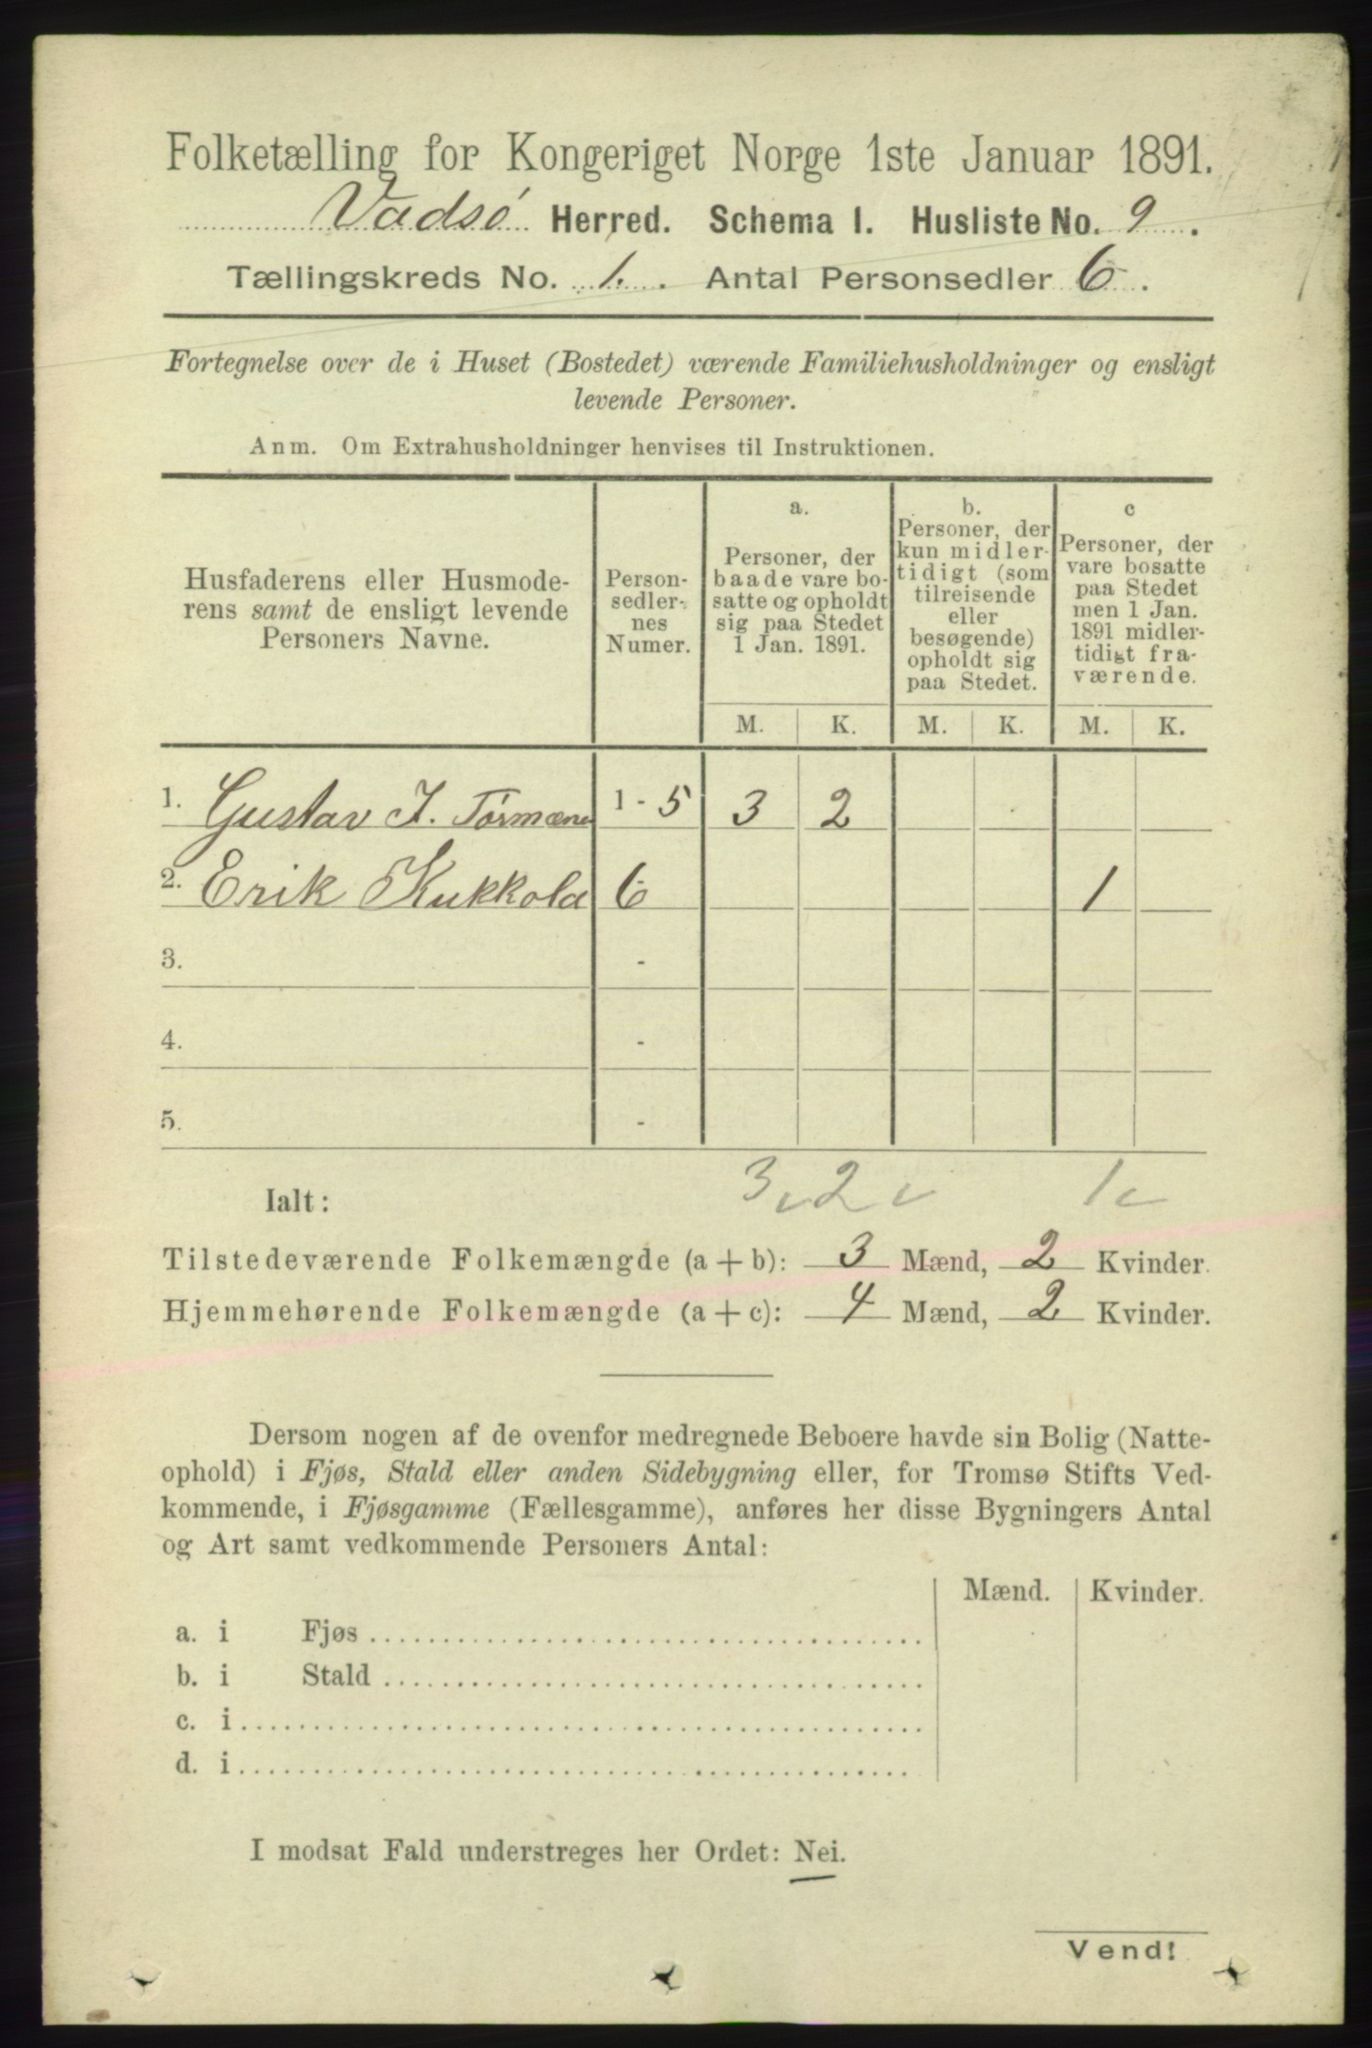 Folketælling for Kongeriget Norge 1ste Januar 1891.
Vadsø Herred. Schema I. Husliste No. 9.
Tællingskreds No. 1. Antal Personsedler 6.
Fortegnelse over de i Huset (Bostedet) værende Familiehusholdninger og ensligt
levende Personer.
Anm. Om Extrahusholdninger henvises til Instruktionen.
Husfaderens eller Husmode-
rens samt de ensligt levende
Personers Navne.
Person-
sedler-
nes
Numer.
a.
Personer, der
baade vare bo-
satte og opholdt
sig paa Stedet
1 Jan. 1891.
b.
Personer, der
kun midler-
tidigt (som
tilreisende
eller
besøgende)
opholdt sig
paa Stedet.
c
Personer, der
vare bosatte
paa Stedet
men 1 Jan.
1891 midler-
tidigt fra-
værende.
M. K. M. K. M. K.
1. Gustav I. Törmæne 1 - 5 3 2
2. Erik Kukkola 6 1
3. -
4. -
5. -
Ialt: 3 2 1
Tilstedeværende Folkemængde (a + b): 3 Mænd, 2 Kvinder.
Hjemmehørende Folkemængde (a + c): 4 Mænd, 2 Kvinder.
Dersom nogen af de ovenfor medregnede Beboere havde sin Bolig (Natte-
ophold) i Fjøs, Stald eller anden Sidebygning eller, for Tromsø Stifts Ved-
kommende, i Fjøsgamme (Fællesgamme), anføres her disse Bygningers Antal
og Art samt vedkommende Personers Antal:
Mænd. Kvinder.
a. i Fjøs
b. i Stald
c. i
d. i
I modsat Fald understreges her Ordet: Nei.
Vend!